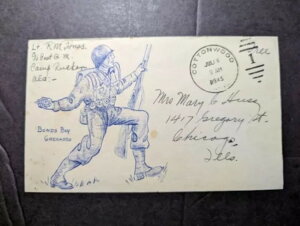 Lt. R M Jones
Camp Rucker
Ala.
COTTONWOOD
JUL
8 AM
1945
Free
1
BONDS BUY
GRENADES
Mrs Mary C
1417 Gregory St.
Chicago,
Ills.